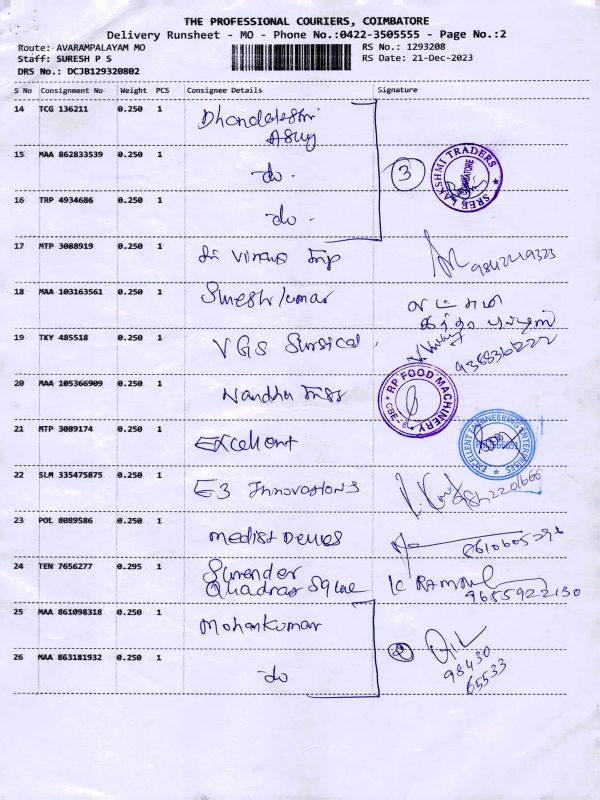 THE PROFESSIONAL COURIERS, COIMBATORE
Delivery Runsheet - MO - Phone No.:0422-3505555 - Page No.:2
Route: AVARAMPALAYAM MO
RS No.: 1293208
Staff: SURESH P S
RS Date: 21-Dec-2023
DRS No.: DCJB129320802
S No Consignment No Weight PCS Consignee Details Signature
14 TCG 136211 0.250 1
15 MAA 862833539 0.250 1 -do- 3
SREE LAKSHMI TRADERS
COIMBATORE
16 TRP 4934686 0.250 1 -do-
17 MTP 3088919 0.250 1
18 MAA 103163561 0.250 1 Sureshkumar
19 TKY 485518 0.250 1 VGS Surgical
20 MAA 105366909 0.250 1 Nandha
RP FOOD MACHINERY
CBE - 6
21 MTP 3089174 0.250 1 Excellent
EXCELLENT ENGINEERING ENTERPRISES
22 SLM 335475875 0.250 1 E3 Innovations
23 POL 8089586 0.250 1
24 TEN 7656277 0.295 1 Surender
9655922130
25 MAA 861098318 0.250 1 Mohankumar
2
98430
65533
26 MAA 863181932 0.250 1 -do